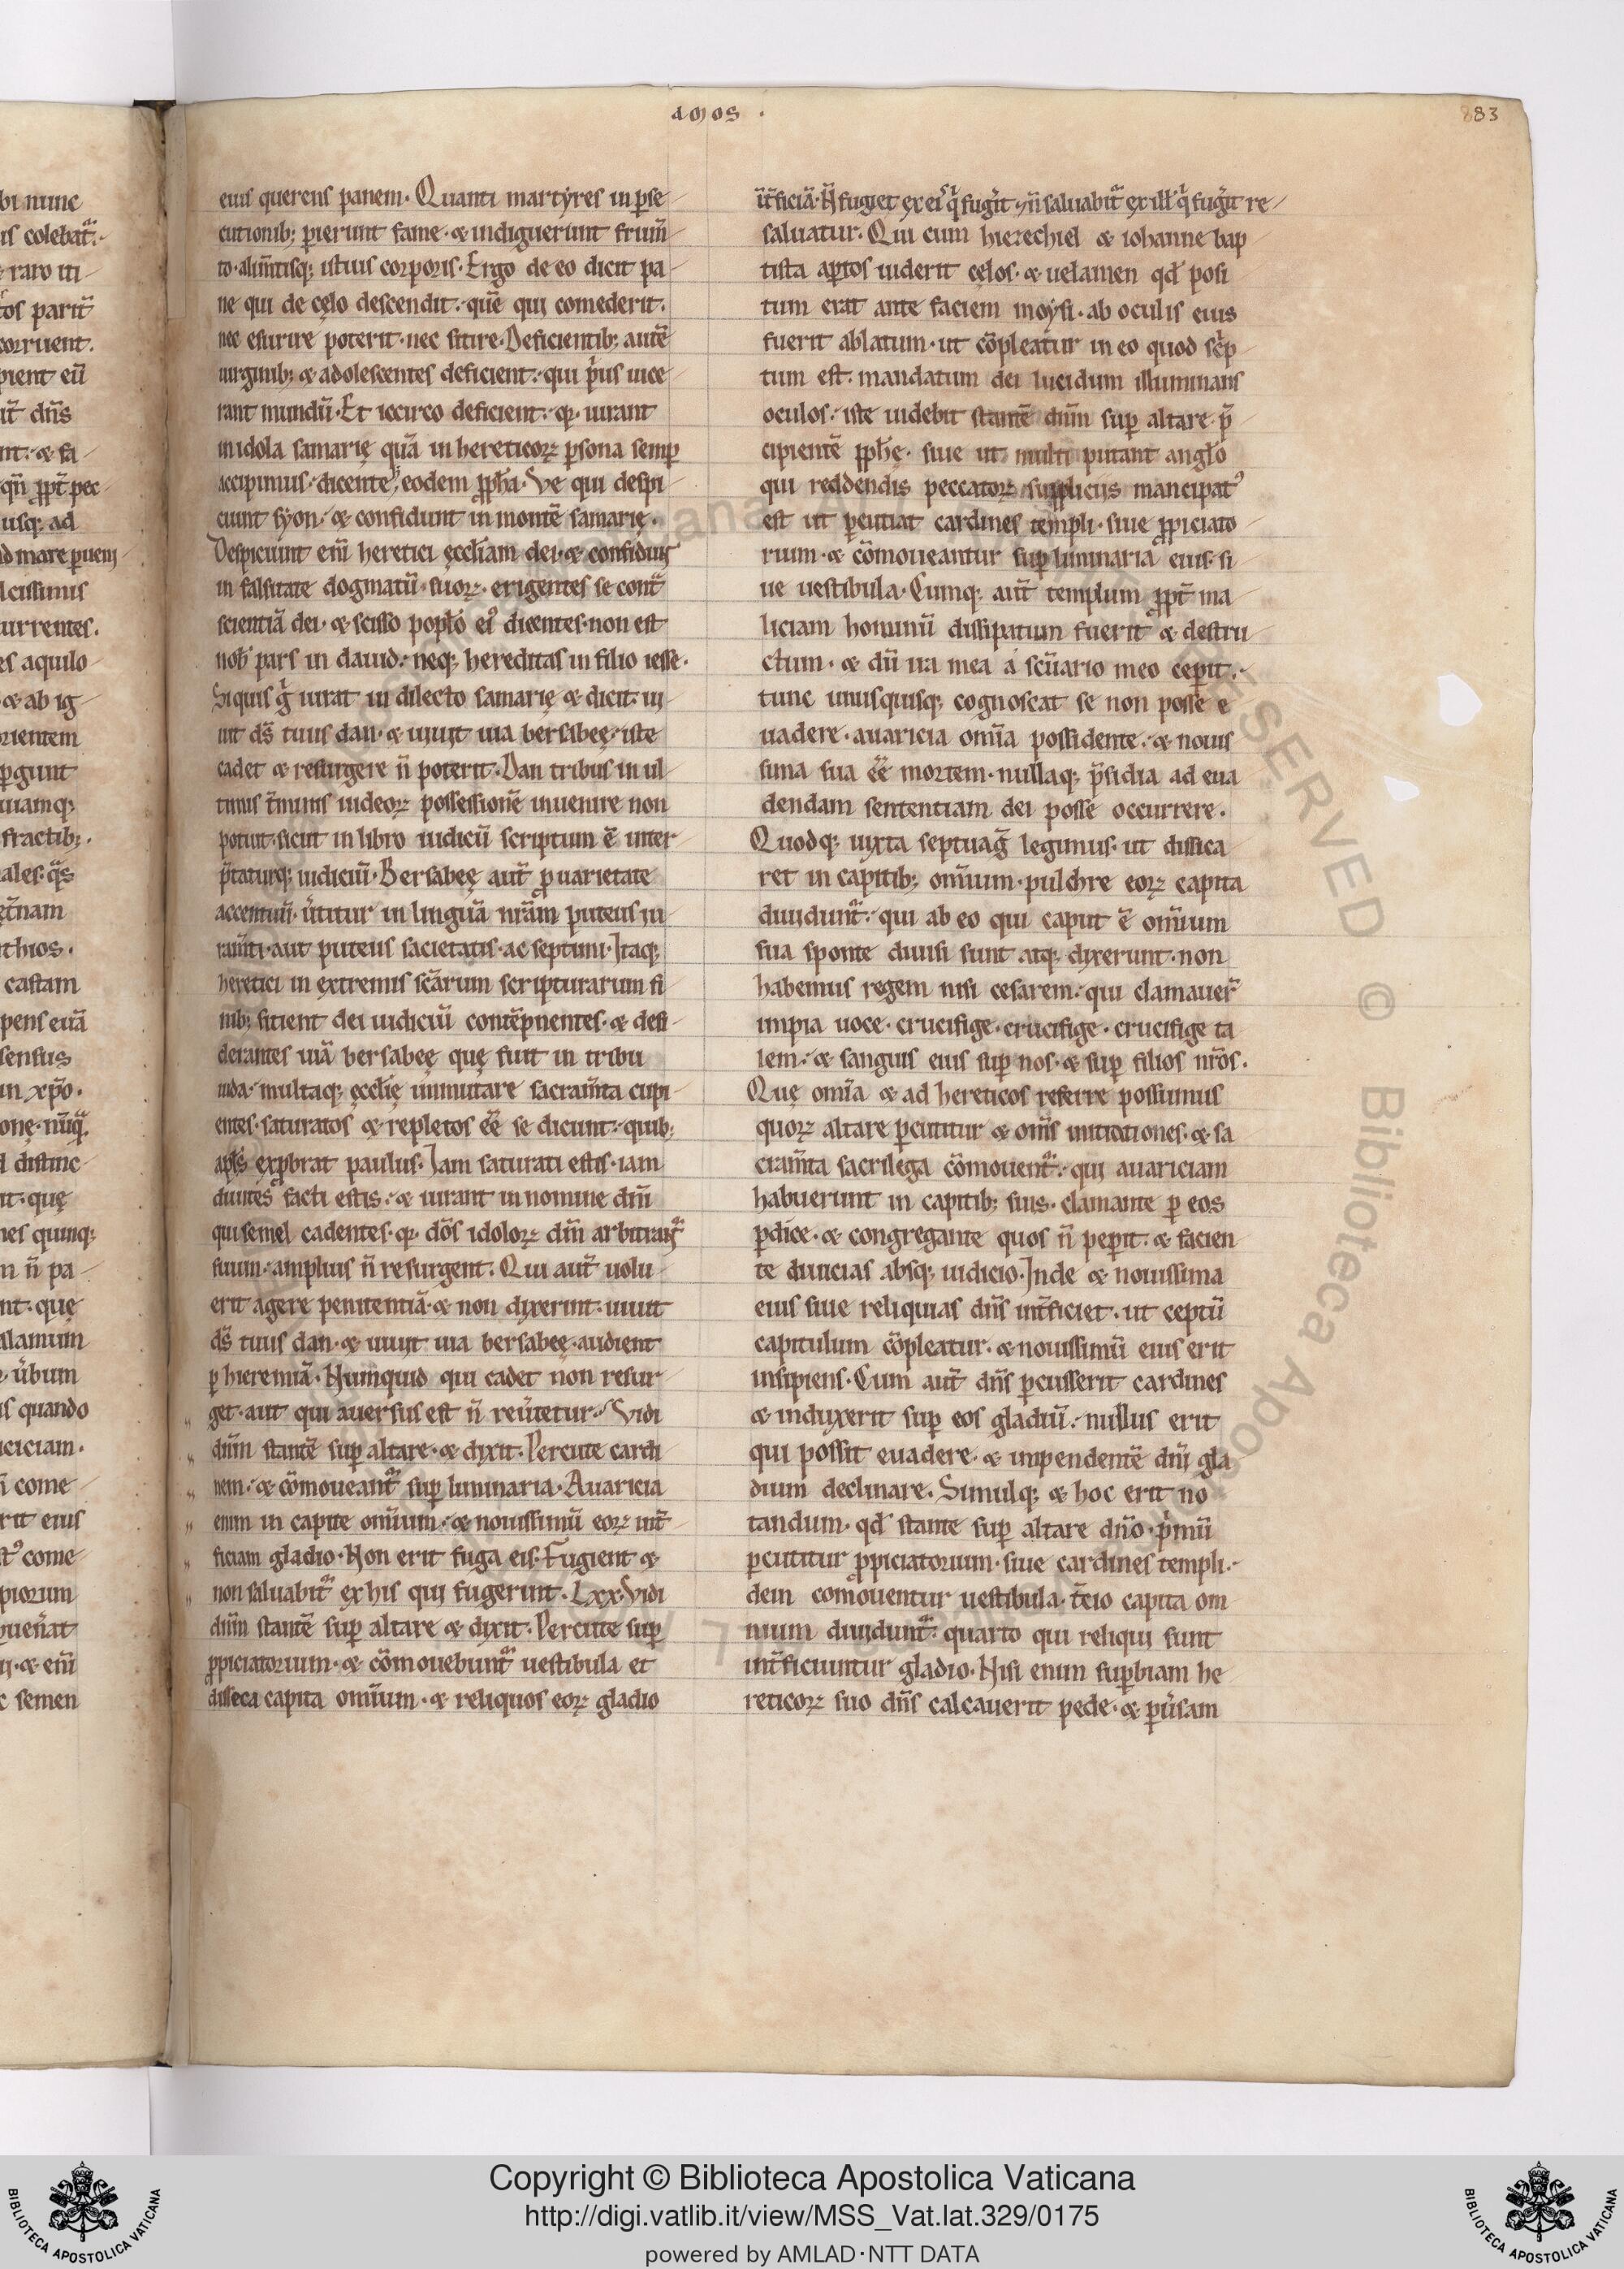 amos .
83
eius querens panem. Quanti martyres in p̄se
cutionib; perierunt fame. & indiguerunt frum̄
to. alim̄tisq; istius corporis. Ergo de eo dicit pa
ne qui de cęlo descendit. quē qui comederit.
nec esurire poterit. nec sitire. Deficientib; autē
uirginib; & adolescentes deficient. qui p̄us uice
rant mundū. Et iccirco deficient. qꝛ iurant
in idola samarię quā in hereticoꝝ ꝑsona semꝑ
accipimus. dicente eodem ꝓph̄a. Ve qui despi
ciunt syon. & confidunt in montē samarię.
Despiciunt eni͂ heretici ęccl̄iam dei. & confidunt
in falsitate dogmatū suoꝝ. erigentes se cont̃
scientiā dei. & scisso popl̄o eiꝰ dicentes. non est
nob̄ pars in dauid. neq; hereditas in filio iesse.
Si quis g̊ iurat in dilecto samarię & dicit. ui
uit ds̄ tuus dan. & uiuit uia bersabeę. iste
cadet & resurgere n̄ poterit. Dan tribus in ul
timis t̄minis iudeoꝝ possessionē inuenire non
potuit. sicut in libro iudicū scriptum ē inter
p̄taturq; iudiciū. Bersabeę aut̄ ꝓ uarietate
accentuū. ūtitur in linguā nr̄am puteus iu
ram̄ti. aut puteus sacietatis. ac septimi. Itaq;
heretici in extremis sc̄arum scripturarum fi
nib; sitient dei iudiciū contēpnentes. & desi
derantes uiā bersabeę quę fuit in tribu
iuda. multaq; ęccl̄ię immutare sacram̄ta cupi
entes. saturatos & repletos ēē se dicunt. quib;
apl̄s exꝓbrat paulus. Iam saturati estis. iam
diuites facti estis. & iurant in nomine dn̄i
qui semel cadentes. qꝛ dōs idoloꝝ dn̄m arbitrant̃
suum. amplius n̄ resurgent. Qui aut̄ uolu
erit agere penitentiā. & non dixerint. uiuit
ds̄ tuus dan. & uiuit uia bersabeę. audient
ꝑ hieremiā. Numquid qui cadet non resur
get. aut qui auersus est n̄ reūtetur. Vidi
dn̄m stantē suꝑ altare. & dixit. Percute cardi
nem. & cōmoueant̃ suꝑ luminaria. Auaricia
enim in capite omīum. & nouissimū eoꝝ int̄
ficiam gladio. Non erit fuga eis. Fugient &
non saluabit̃ ex his qui fugerint. Lxx. Vidi
dn̄m stantē suꝑ altare & dixit. Percute suꝑ
ꝓpiciatorium. & cōmouebunt̃ uestibula et
disseca capita omīum. & reliquos eoꝝ gladio
int̄ficiā. N̄ fugiet ex eis q̊ fuḡit. & n̄ saluabit̃ ex ill̄ q̊ fuḡit re
saluatur. Qui cum hiezechiel & iohanne bap
tista aꝑtos uiderit cęlos. & uelamen qd̄ posi
tum erat ante faciem moysi. ab oculis eius
fuerit ablatum. ut cōpleatur in eo quod sc̄p
tum est. mandatum dei lucidum illuminans
oculos. iste uidebit stantē dn̄m suꝑ altare. p̄
cipientē ꝓph̄ę. siue ut multi putant angl̄o
qui reddendis peccatoꝝ suppliciis mancipatꝰ
est ut ꝑcutiat cardines templi. siue ꝓpiciato
rium. & cōmoueantur suꝑ luminaria eius. si
ue uestibula. Cumq; aut̄ templum ꝓpt̄ ma
liciam hominū dissipatum fuerit & destru
ctum. & dū ira mea a sc̄uario meo cepit.
tunc unusquisq; cognoscat se non posse e
uadere. auaricia omīa possidente. & nouis
sima sua ēē mortem. nullaq; p̄sidia ad eua
dendam sententiam dei posse occurrere.
Quodq; iuxta septuaḡ legimus. ut dissica
ret in capitib; omīum. pulchre eoꝝ capita
diuidunt̃. qui ab eo qui caput ē omīum
sua sponte diuisi sunt atq; dixerunt. non
habemus regem nisi cesarem. qui clamauer̄
impia uoce. crucifige. crucifige. crucifige ta
lem. & sanguis eius suꝑ nos. & suꝑ filios nr̄os.
Quę omīa & ad hereticos referre possumus
quoꝝ altare ꝑcutitur & omīs initiationes. & sa
cram̄ta sacrilega cōmouent̃. qui auariciam
habuerunt in capitib; suis. clamante ꝑ eos
ꝑdice. & congregante quos n̄ peꝑit. & facien
te diuicias absq; iudicio. Inde & nouissima
eius siue reliquias dn̄s int̄ficiet. ut ceptū
capitulum cōpleatur. & nouissimū eius erit
insipiens. Cum aut̄ dn̄s ꝑcusserit cardines
& induxerit suꝑ eos gladiū. nullus erit
qui possit euadere. & inpendentē dn̄i gla
dium declinare. Simulq; & hoc erit no
tandum. qd̄ stante suꝑ altare dn̄o. p̄mū
ꝑcutitur ꝓpiciatorium. siue cardines templi.
dein comouentur uestibula. t̄cio capita om
nium diuidunt̃. quarto qui reliqui sunt
int̄ficiuntur gladio. Nisi enim suꝑbiam he
reticoꝝ suo dn̄s calcauerit pede. & ꝑūsam
Copyright © Biblioteca Apostolica Vaticana
http://digi.vatlib.it/view/MSS_Vat.lat.329/0175
powered by AMLAD·NTT DATA
BIBLIOTECA APOSTOLICA VATICANA
BIBLIOTECA APOSTOLICA VATICANA